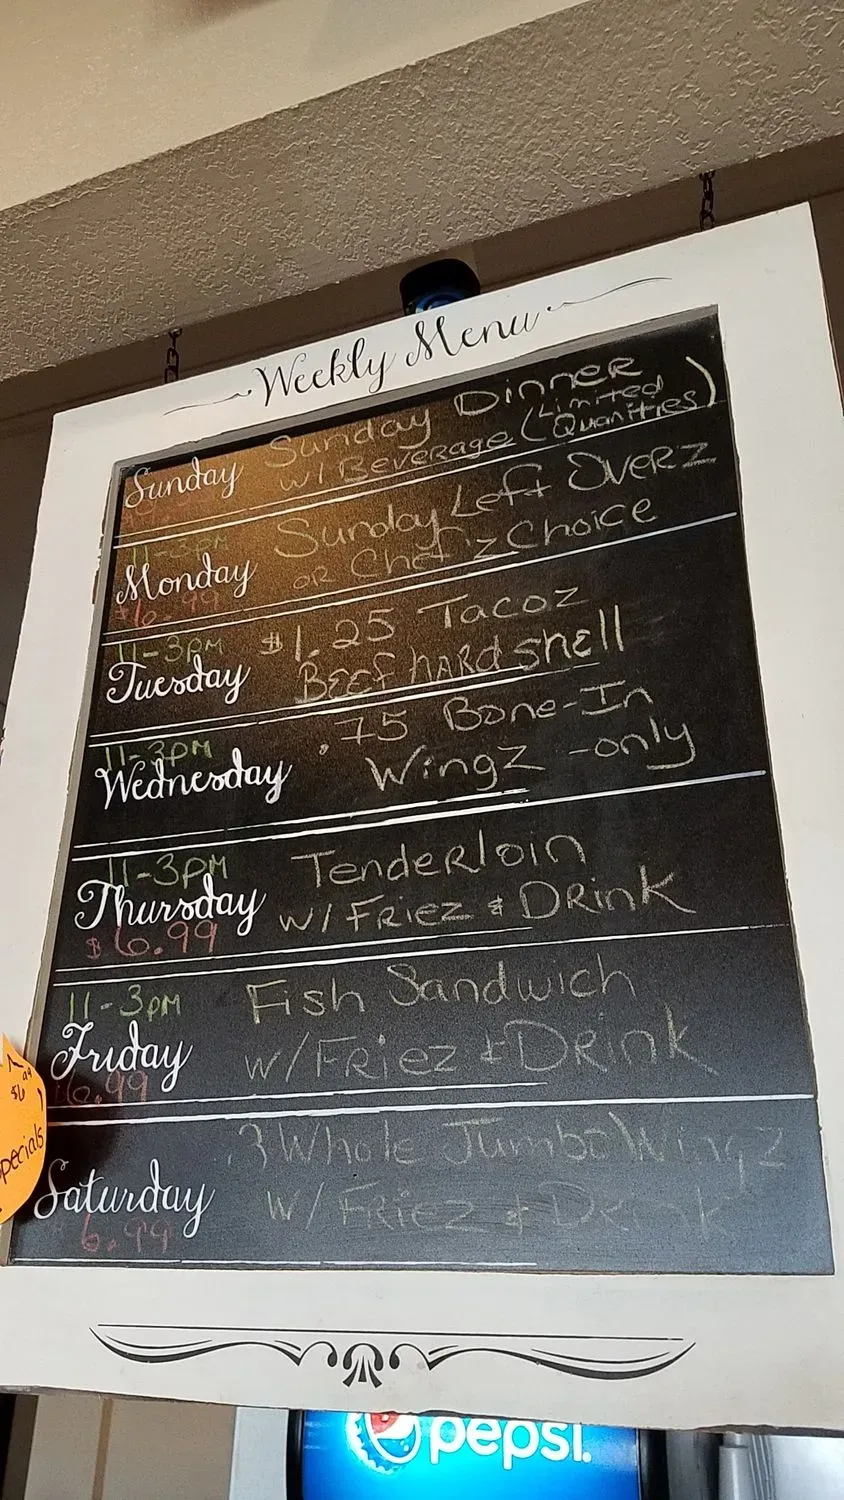 Weekly Menu
Sunday Sunday Dinner
w/ Beverage (Limited Quanities)
11-3pm
Monday Sunday Left OverZ
$6.99 or Chef'z Choice
11-3pm
Tuesday $1.25 Tacoz
Beef hard shell
11-3pm
Wednesday .75 Bone-In
WingZ -only
11-3pm
Thursday Tenderloin
$6.99 w/ Friez & Drink
11-3pm
Friday Fish Sandwich
$6.99 w/ Friez & Drink
Saturday 3 Whole Jumbo WingZ
6.99 w/ Friez & Drink
$6.99
specials
pepsi.